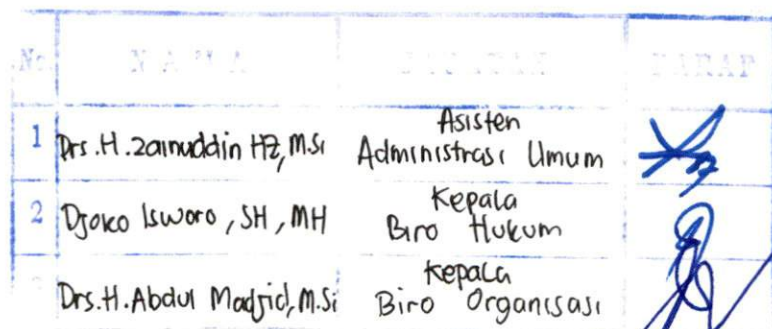 No. NAMA JABATAN PARAF
1 Drs.H.Zainuddin HZ, M.Si Asisten
Administrasi Umum
2 Djoko Isworo, SH, MH Kepala
Biro Hukum
Drs.H.Abdul Madjid, M.Si Kepala
Biro Organisasi